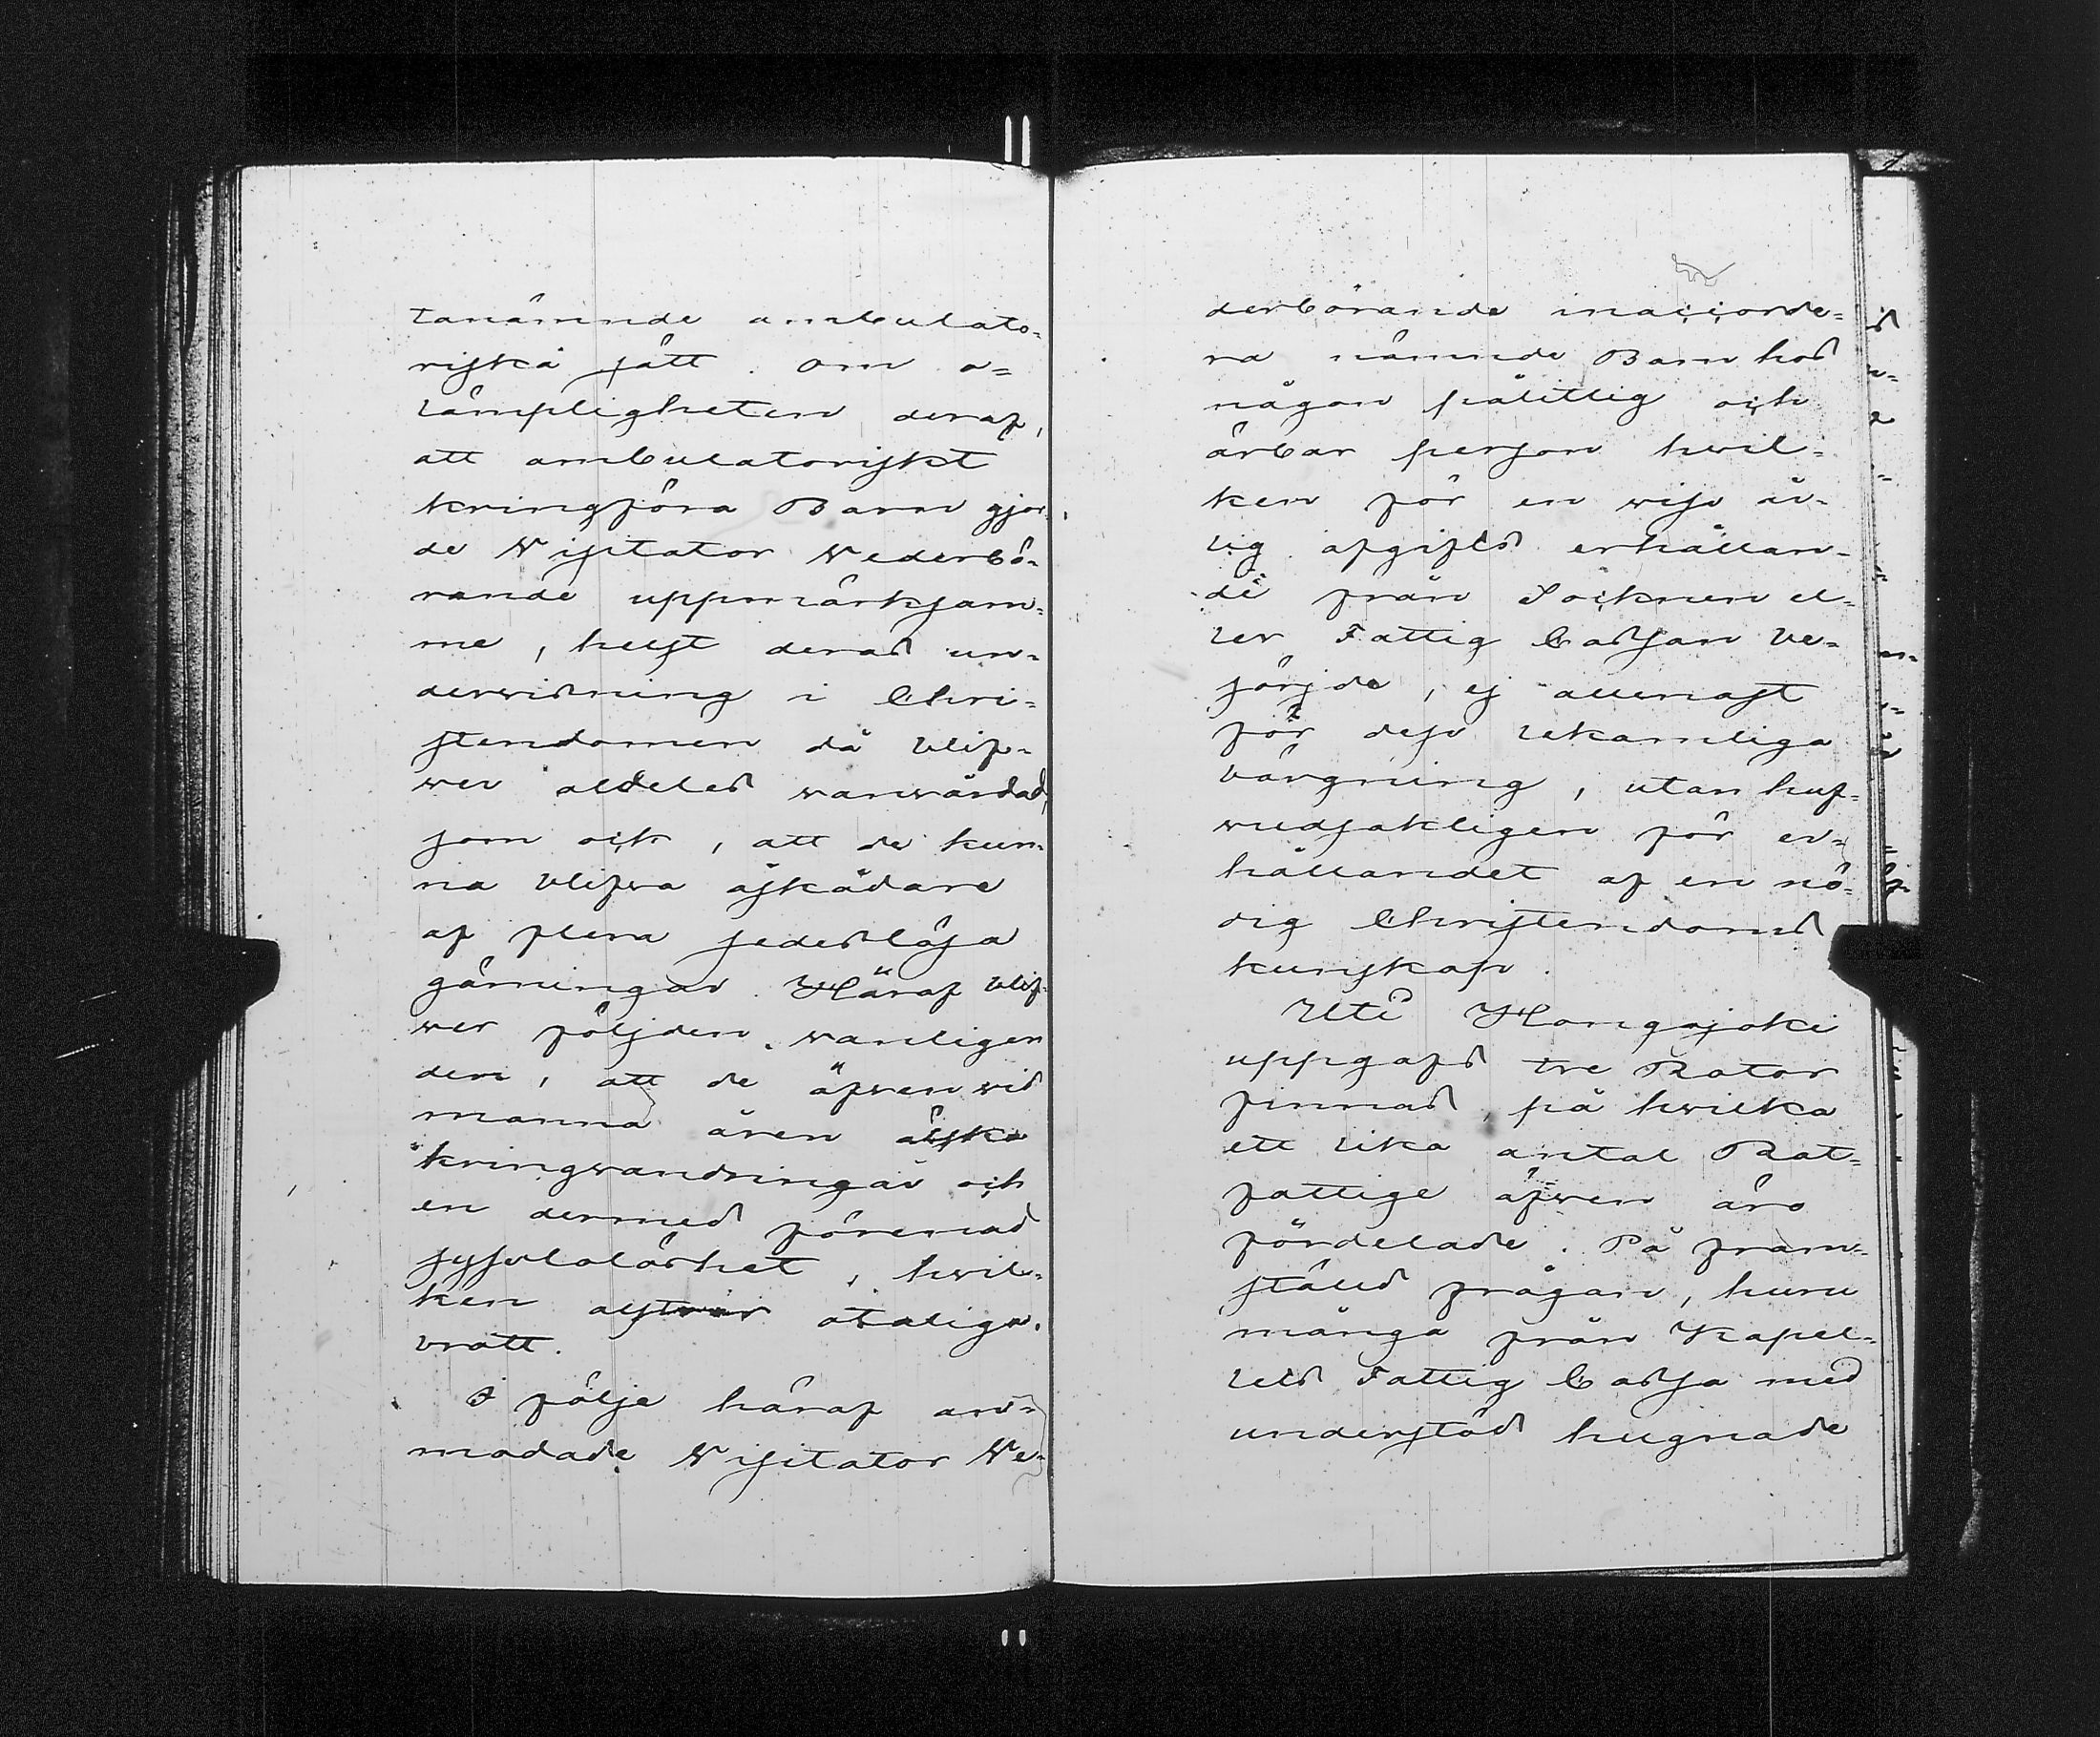 tanämnde ambulato-
riska sätt. Om o=
lämpligheten deraf,
att ambulatoriskt
kringföra Barn gjor-
de Visitator Vederbö-
rande uppmärksam-
me, helst deras un-
dervisning i Chri-
stendomen då blif-
wer aldeles wanwårdad,
som ock, att de kun-
na blifwa åskådare
af flera sedeslösa
gärningar. Häraf blif-
wer följden wanligen
den, att de äfwen wid
manna åren älska
kringwandringar och
en dermed förenad
sysslolöshet, hwil-
ken alstrar otaliga
brott.
I följe häraf an-
modade Visitator Ve-
derbörande inaccorde-
ra nämnde Barn hos
någon pålitlig och
ärbar person hwil-
ken för en wiss år-
lig afgifts erhållan-
de från Socknen el-
ler Fattig Cassan be-
sörjde, ej allenast
för dess lekamliga
bärgning, utan huf-
wudsakligen för er-
hållandet af en nö-
dig Christendoms
kunskap.
Uti Hongajoki
uppgafs tre Rotar
finnas, på hwilka
ett lika antal Rot-
fattige äfwen äro
fördelade. På fram-
ställd frågan, huru
många från Kapel-
lets Fattig Cassa med
understöd hugnade